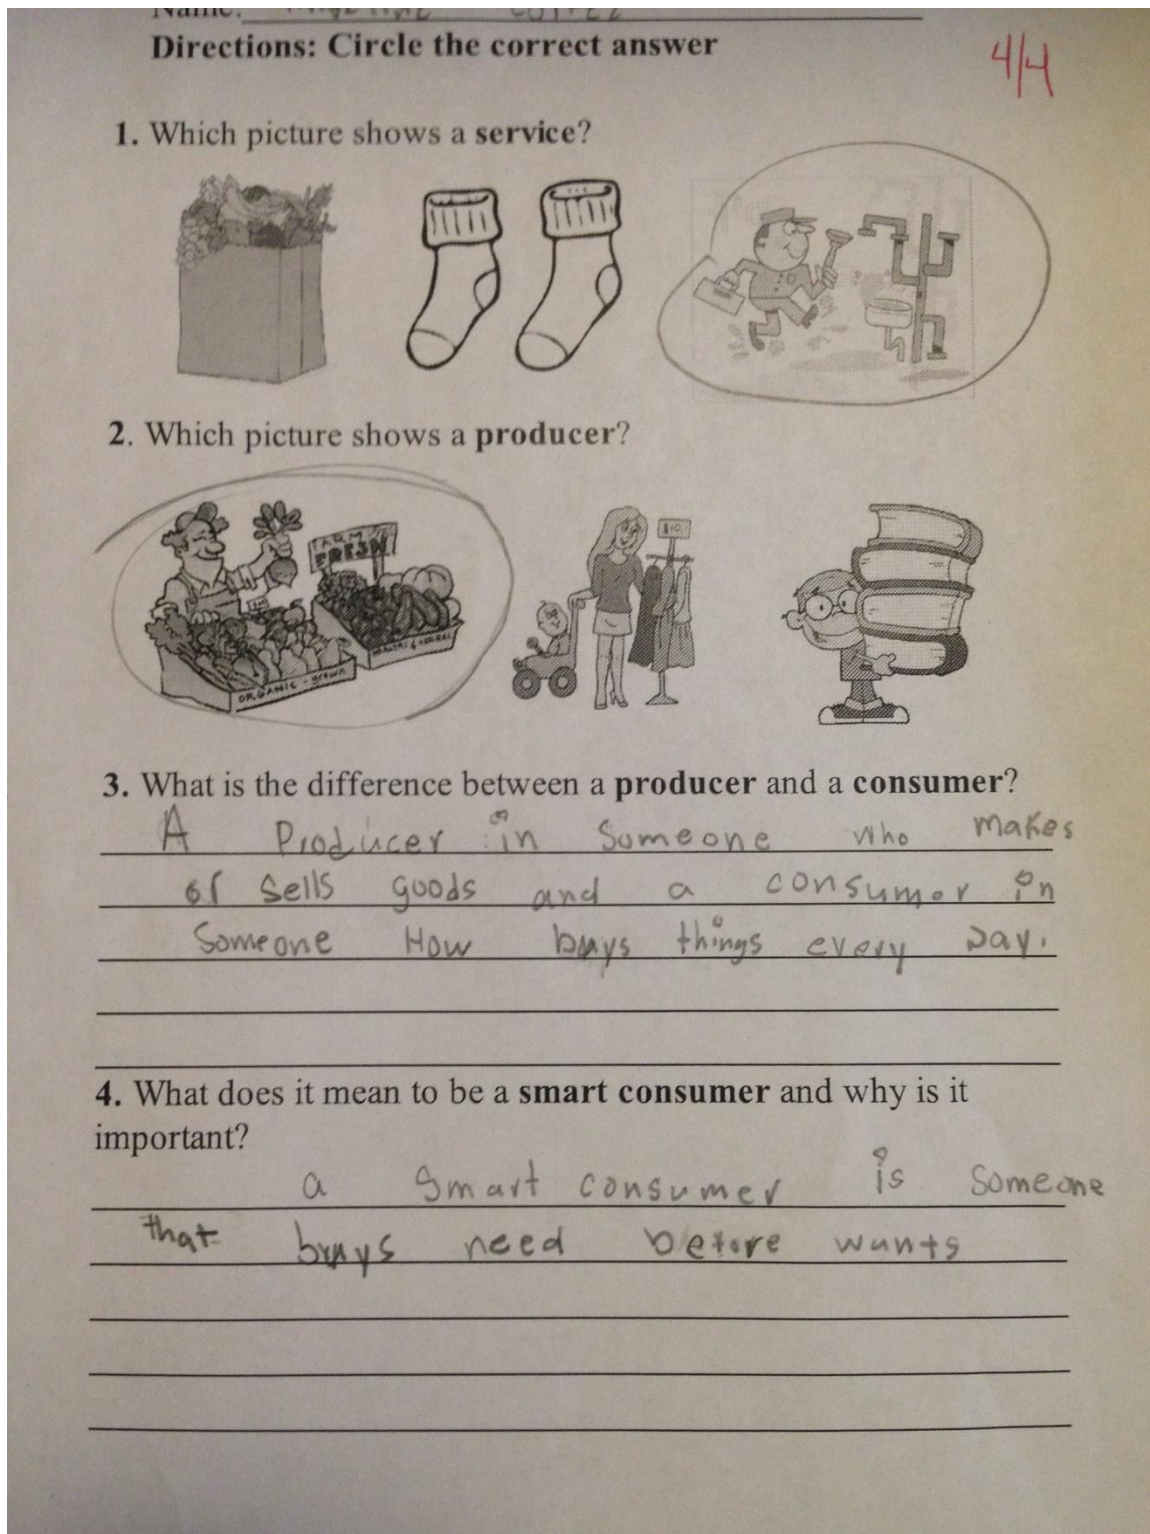 Name:
Directions: Circle the correct answer
4/4
1. Which picture shows a service?
2. Which picture shows a producer?
FARM
FRESH
$10.
ORGANIC - grown
3. What is the difference between a producer and a consumer?
A Producer in Someone who makes
or sells goods and a consumer in
Someone How buys things every Day.
4. What does it mean to be a smart consumer and why is it
important?
a smart consumer is someone
that buys need before wants